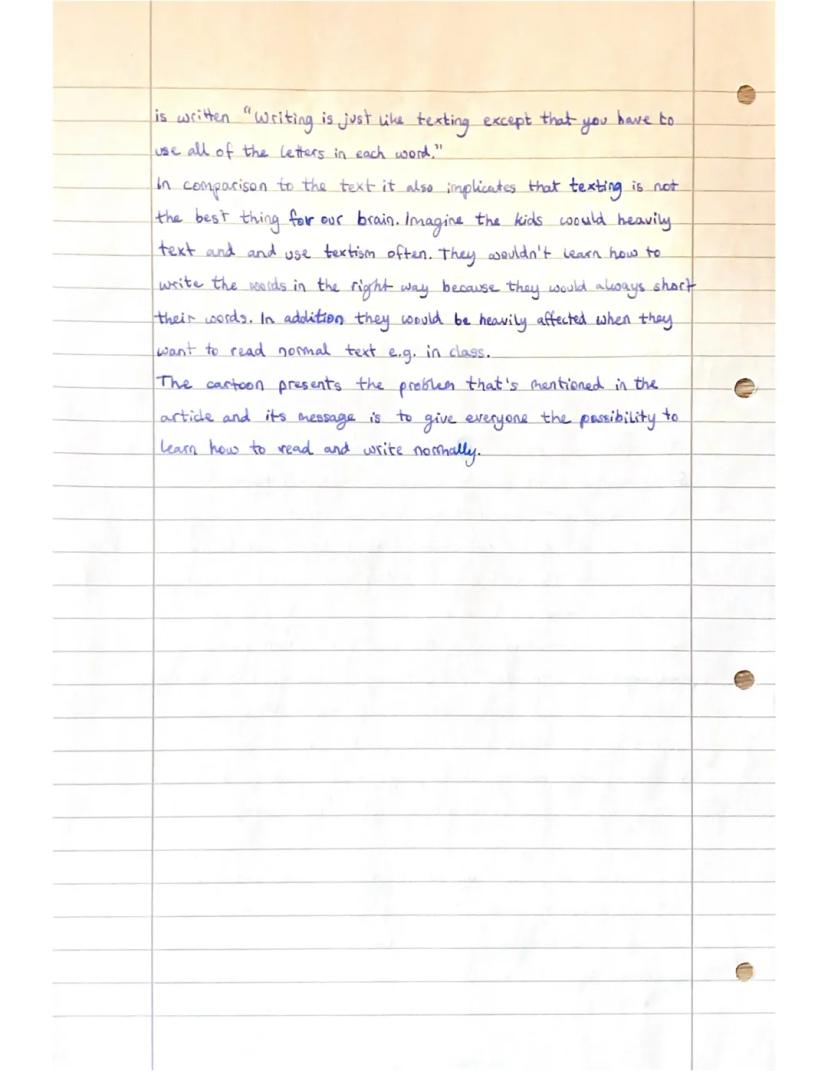 is written "Writing is just like texting except that you have to
use all of the letters in each word."
In comparison to the text it also implicates that texting is not
the best thing for our brain. Imagine the kids would heavily
text and and use textism often. They wouldn't learn how to
write the words in the right way because they would always short
their words. In addition they would be heavily affected when they
want to read normal text e.g. in class.
The cartoon presents the problem that's mentioned in the
article and its message is to give everyone the possibility to
learn how to read and write normally.